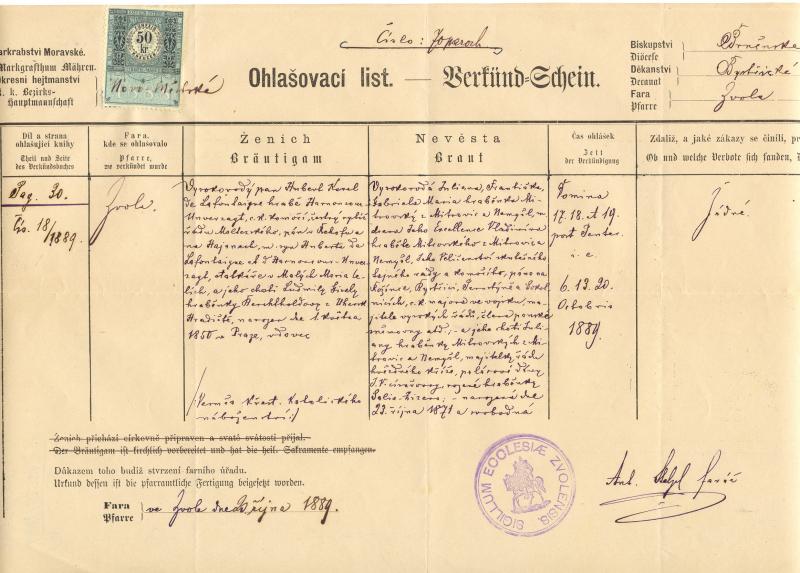 arkrabství Moravské.
Markgrafthum Mähren.
kresní hejtmanství
k. k. Bezirks-
hauptmannschaft
50
kr
Číslo:
Ohlašovací list. — Verkünd-Schein.
Biskupství
Diöcese
Brněnské
Děkanství
Decanat
Bystřické
Fara
Pfarre
Zvole
Díl a strana
ohlašující knihy
Theil und Seite
des Verkündbuches
Fara,
kde se ohlašovalo
Pfarre,
wo verkündet wurde
Ženich
Bräutigam
Nevěsta
Braut
Čas ohlášek
Zeit
der Verkündigung
Zdaliž, a jaké zákazy se činili, pr
Ob und welche Verbote sich fanden,
Pag. 30.
Čís. 18/1889.
Zvole.
Vysokorodý pan Hubert Karel
de Lafontaigne hrabě Harnoncour
Unverzagt, c. k. komoří, čestný rytíř
řádu Maltezského, pán v
na Hajanech, m. syn Huberta de
Lafontaigne et d'Harnoncour-Unver-
zagt, statkáře v Malých
a jeho choti Ludmily
hraběnky z Uhersk.
Hradiště, narozen dne 1. května
1850 v Praze, vdovec
náboženství
Vysokorodá Juliana, Františka,
Gabriela Maria hraběnka Mi-
trovský z Mitrovic a Nemyšl,
dcera Jeho Excellence Vladimíra
hraběte Mitrovského z Mitrovic a
Nemyšl, Jeho Veličenství skutečného
tajného rády a komořího, pána na
Rožínce, Bystřici, Pernštýně a Sokol-
nicích, c. k. majora ve vojsku, ma-
jitele vysokých řádů, člena panské
sněmovny atd., a jeho choti Juli-
any hraběnky Mitrovských z Mi-
trovic a Nemyšl, majitelky řádu
hvězdného kříže, palácové dámy
rozené hraběnky
narozená dne
23. října 1871 a svobodná
17. 18. et 19.
post Pentec.
i. e.
6. 13. 20.
Octobris
1889.
Žádné.
Ženich přichází církevně připraven a svaté svátosti přijal.
Der Bräutigam ist kirchlich vorbereitet und hat die heil. Sakramente empfangen.
Důkazem toho budiž stvrzení farního úřadu.
Urkund dessen ist die pfarramtliche Fertigung beigesetzt worden.
Fara
Pfarre
ve Zvole dne října 1889.
SIGILLUM ECCLESIÆ ZVOLENSIS
Ant. farář